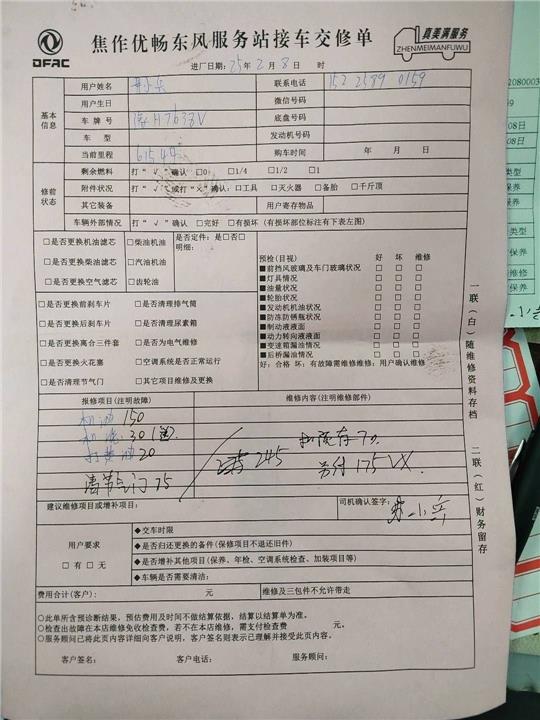 DFAC
焦作优畅东风服务站接车交修单
真美满服务
ZHENMEIMANFUWU
进厂日期：25年2月8日 时
基本信息
用户姓名 联系电话 152 2589 0159
用户生日 微信号码
车牌号 底盘号码
车型 发动机号码
当前里程 购车时间 年 月 日
修前状态
剩余燃料 打“√”确认 □0 □1/4 □1/2 □1
附件状况 打“√”或打“×”确认：□工具 □灭火器 □备胎 □千斤顶
其它装备 用户寄存物品
车辆外部情况 打“√”确认 □完好 □有损坏（有损坏部位标注有下表左图）
□是否更换机油滤芯 □柴油机油
□是否更换柴油滤芯 □汽油机油
□是否更换空气滤芯 □齿轮油
是否定件：是□否□
明细：
□是否更换前刹车片 □是否清理排气筒
□是否更换后刹车片 □是否清理尿素箱
□是否更换离合三件套 □是否为电气维修
□是否更换火花塞 □空调系统是否正常运行
□是否清理节气门 □其它项目维修及更换
预检(目视) 好 坏 维修
■前挡风玻璃及车门玻璃状况 □ □ □
■灯具情况 □ □ □
■油量状况 □ □ □
■轮胎状况 □ □ □
■发动机机油状况 □ □ □
■防冻防锈瓶状况 □ □ □
■制动液液面 □ □ □
■动力转向液液面 □ □ □
■变速箱漏油情况 □ □ □
■后桥漏油情况 □ □ □
好：合格 坏：有故障需维修维修：用户确认维修
报修项目(注明故障) 维修内容(注明维修部件)
机油 150
30
打黄油 20
清节气门 75
245
扣预存70
另付175VX.
建议维修项目或增补项目： 司机确认签字：
用户要求
□有 □无
◆交车时限
◆是否归还更换的备件(保修项目不退还旧件)
◆是否增补其他项目(保养、年检、空调系统检查、加装项目等)
◆车辆是否需要清洁：
费用合计(客户)： 元 维修及三包件不允许带走
○此单所含预诊断结果，预估费用及时间不做结算依据，结算以结算单为准。
○检查出故障在本店维修免收检查费，若不在本店维修，需支付检查费 元。
○服务顾问已将此页内容详细向客户说明，客户签名则表示已理解并接受此页内容。
客户签名： 客户电话： 服务顾问：
一联（白）随维修资料存档
二联（红）财务留存
2080003
08日
08日
类型
保养
保养
类型
保养
维修
保养